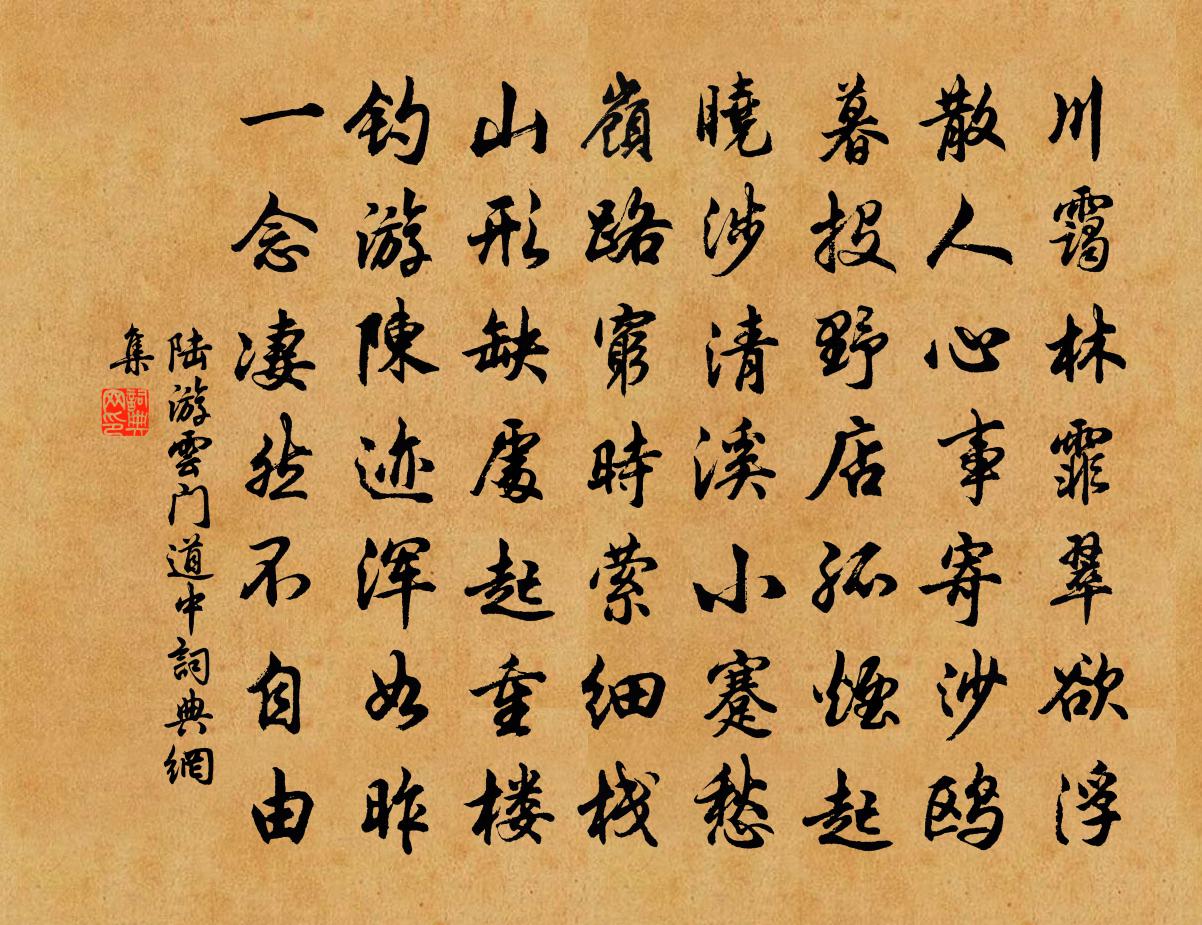 川靄林霏翠欲浮
散人心事寄沙鸥
暮投野店孤煙起
曉涉清溪小蹇愁
嶺路窮時萦细栈
山形缺處起重楼
钓游陳迹浑如昨
一念凄然不自由
陆游雲门道中詞典網
集
詞典网印